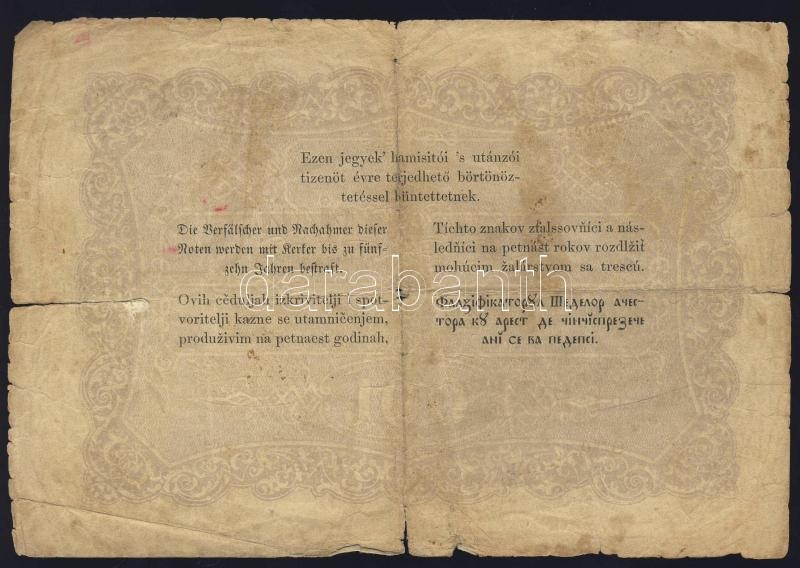 Ezen jegyek' hamisitói 's utánzói
tizenöt évre terjedhető börtönöz-
tetéssel büntettetnek.
Die Verfälscher und Nachahmer dieser
Noten werden mit Kerker bis zu fünf-
zehn Jahren bestraft.
Tíchto znakov zfalssovňíci a nás-
ledňíci na petnást rokov rozdlžiť
mohúcim žalárstvom sa trescú.
Ovih cěduljah izkrivitelji i spot-
voritelji kazne se utamničenjem,
produživim na petnaest godinah,
Фалзіфікаторꙋл Шеделор ачес-
тора кꙋ арест де чінчіспрезече
ані се ва педепсі.
darabanth
100